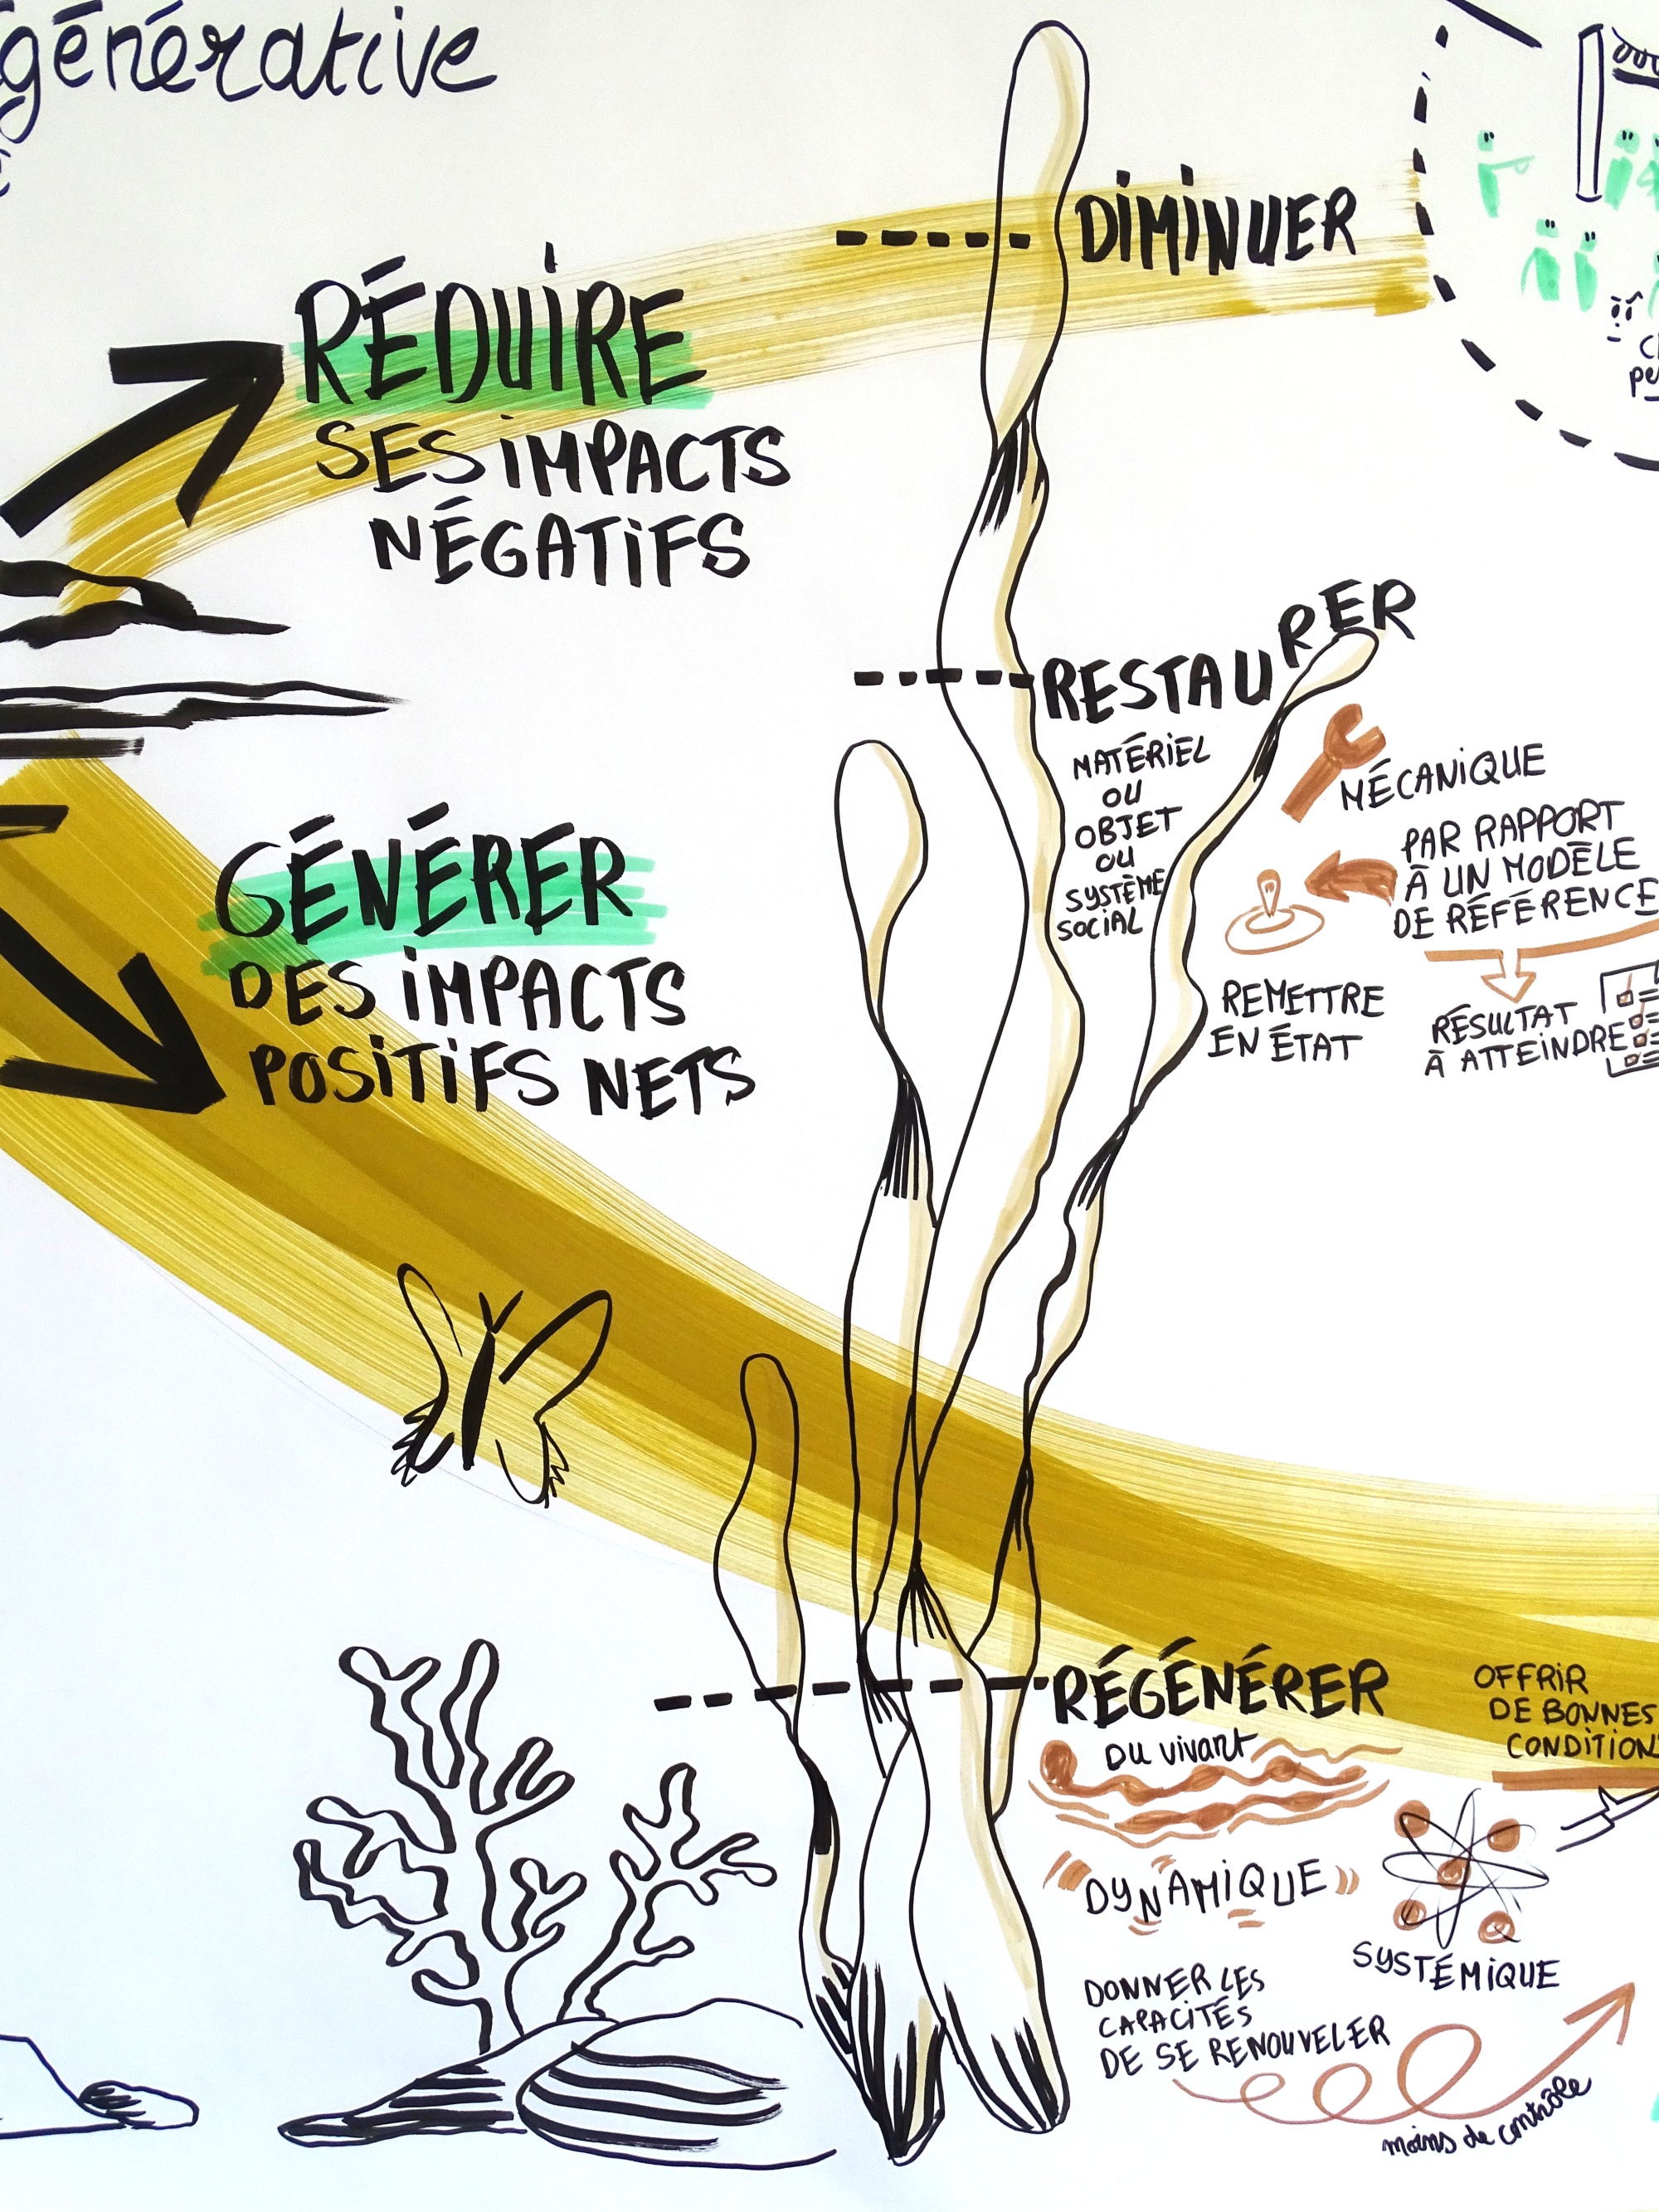 générative
DIMINUER
RÉDUIRE
SES IMPACTS
NÉGATIFS
RESTAURER
MATÉRIEL
OU
OBJET
OU
SYSTÈME
SOCIAL
MÉCANIQUE
PAR RAPPORT
À UN MODÈLE
DE RÉFÉRENCE
REMETTRE
EN ÉTAT
RÉSULTAT
À ATTEINDRE
GÉNÉRER
DES IMPACTS
POSITIFS NETS
RÉGÉNÉRER
DU vivant
OFFRIR
DE BONNES
CONDITION
DYNAMIQUE
SYSTÉMIQUE
DONNER LES
CAPACITÉS
DE SE RENOUVELER
moins de contrôle